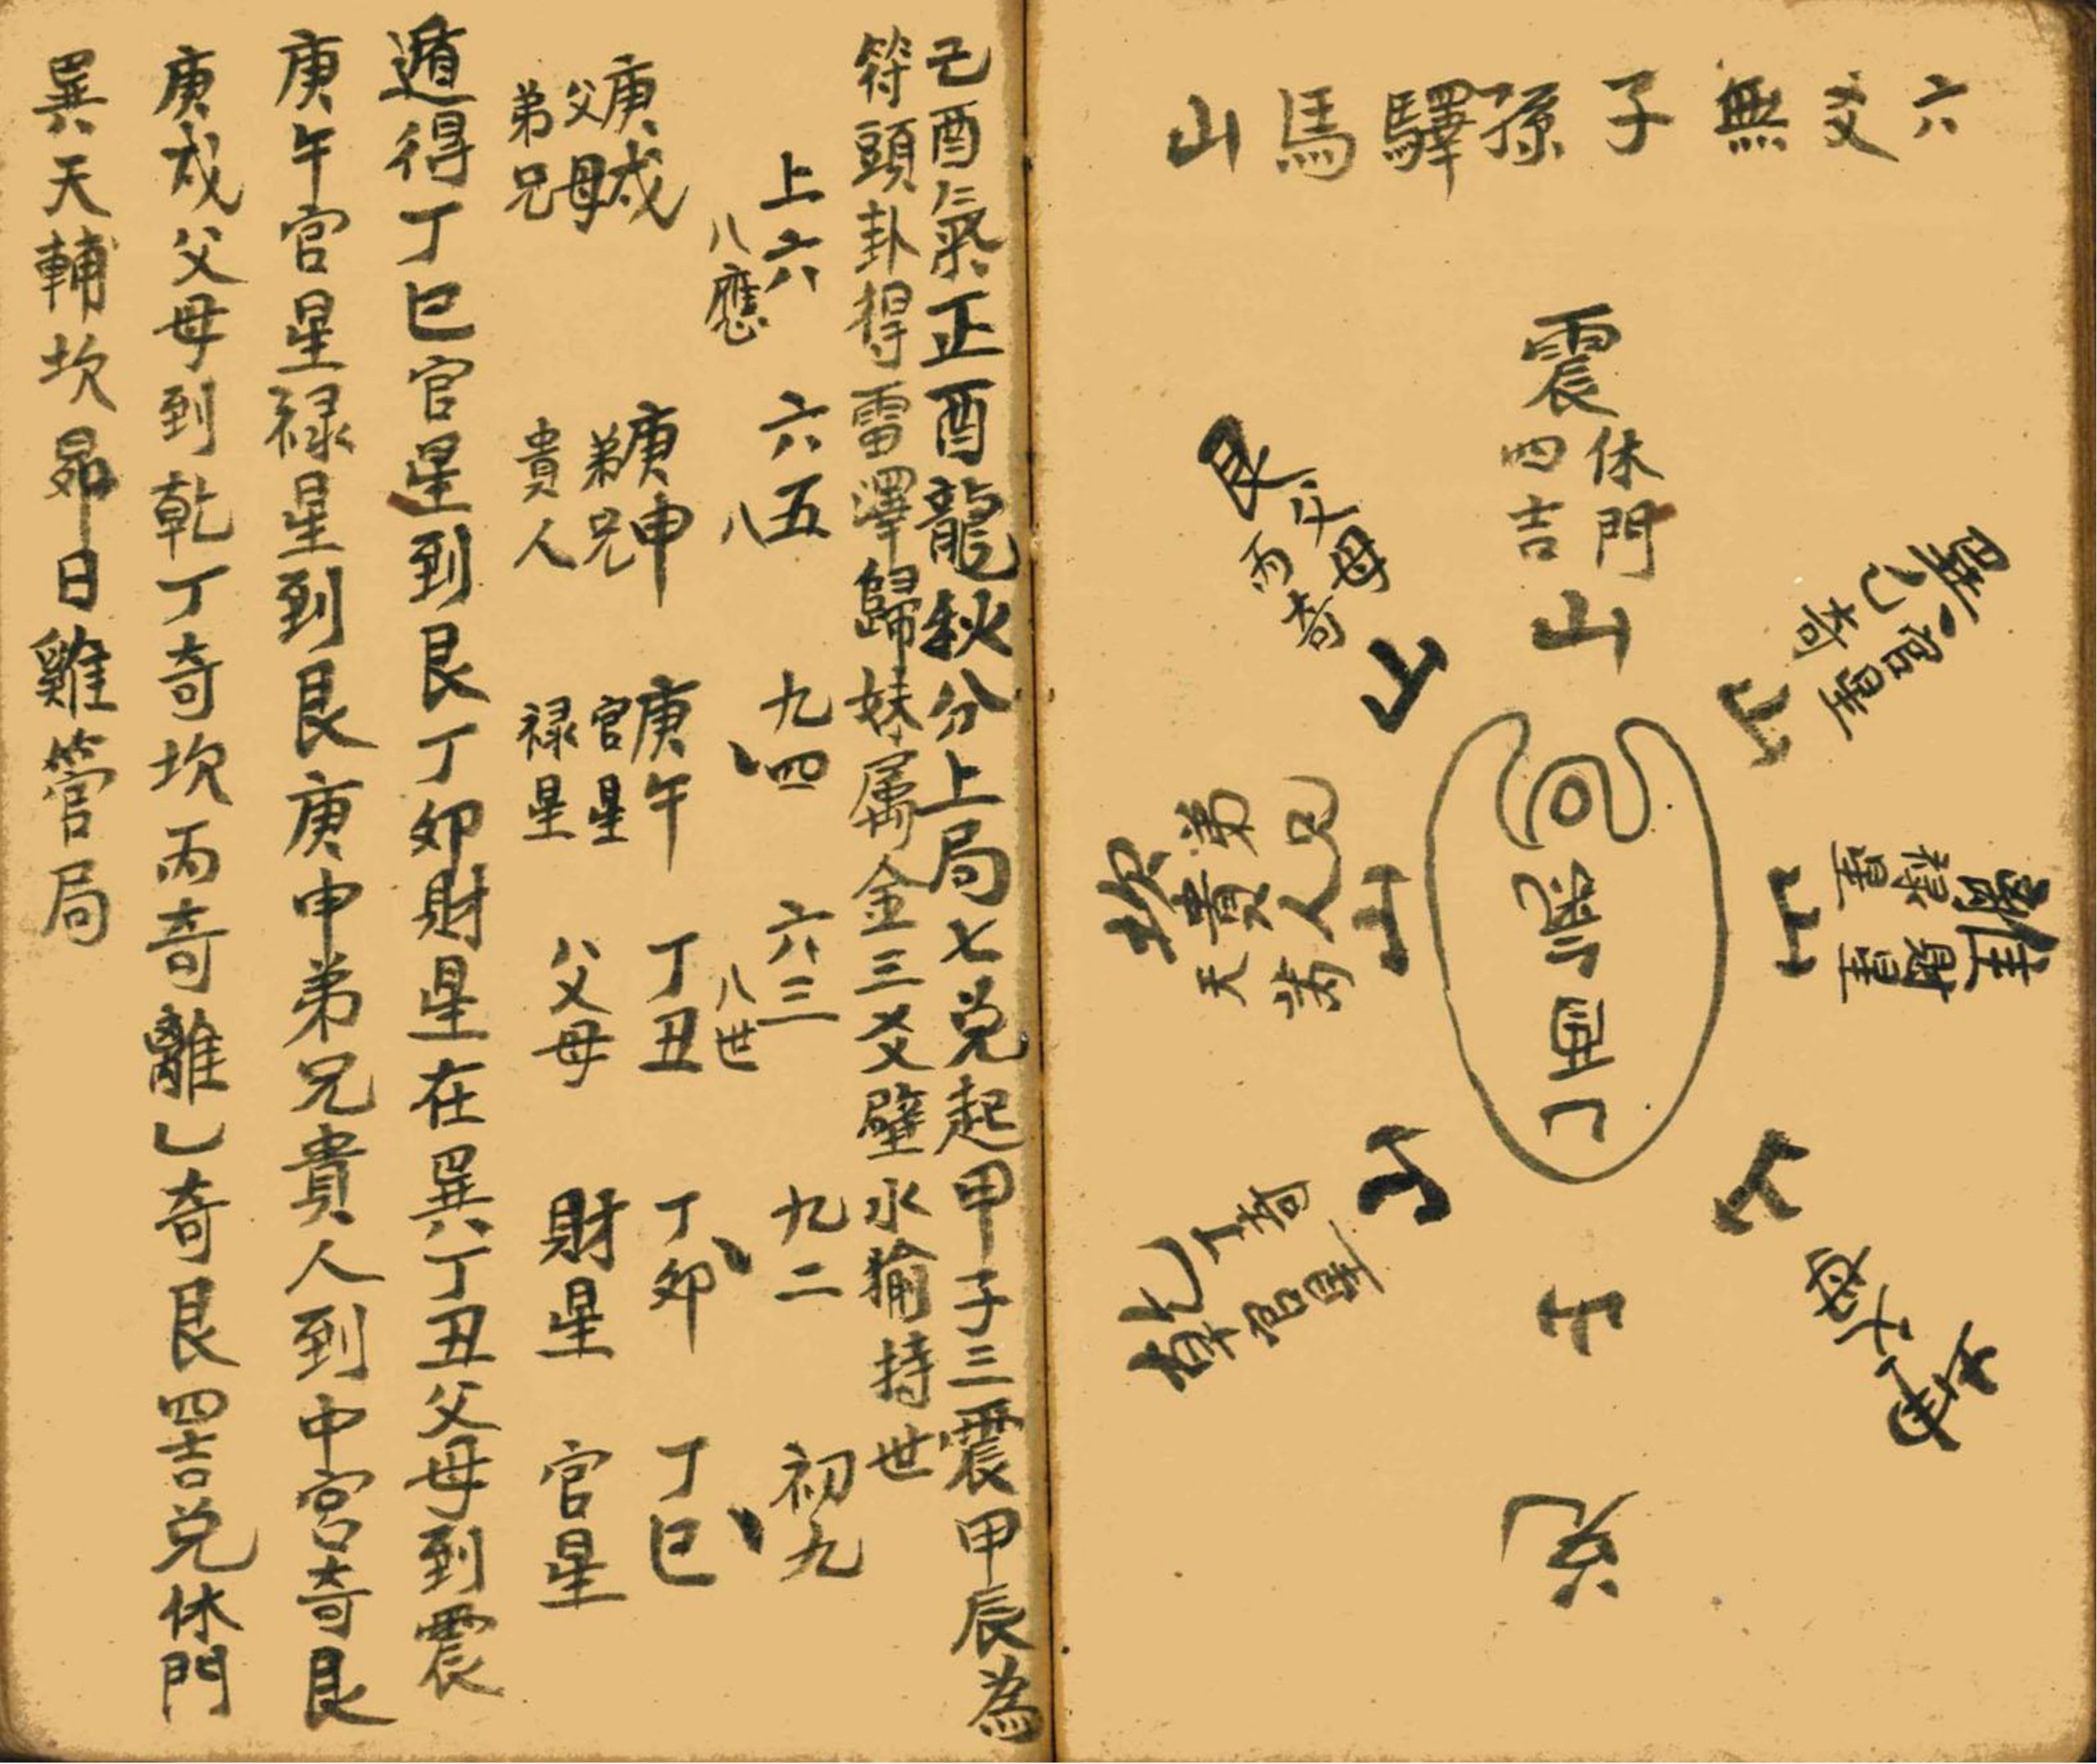 六爻無子孫驛馬山
震
休門
四吉
山
巽
官星
乙奇
山
離
財星
祿星
山
艮
父母
丙奇
山
坎
弟兄
貴人
天
山
乾
丁奇
官星
山
山
父母
山
兌
己酉氣正酉龍秋分上局七兌起甲子三震甲辰為
符頭卦得雷澤歸妹屬金三爻壁水㺄持世
上六
六五
九四
六三
九二
初九
八應
八
八世
庚戌
庚申
庚午
丁丑
丁卯
丁巳
父母
弟兄
弟兄
貴人
官星
禄星
父母
財星
官星
遁得丁巳官星到艮丁卯財星在巽丁丑父母到震
庚午官星禄星到艮庚申弟兄貴人到中宮奇艮
庚戌父母到乾丁奇坎丙奇離乙奇艮四吉兌休門
巽天輔坎昴日雞管局